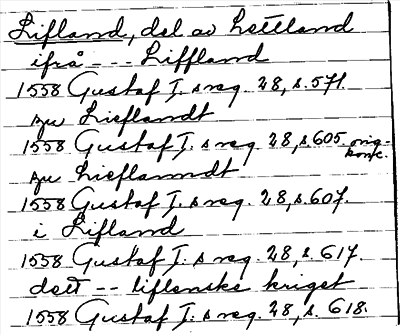 Lifland, del av Lettland
ifrå - - - Liffland
1558 Gustaf I. s reg. 28, s. 571.
zu Lieflandt
1558 Gustaf I. s reg. 28, s. 605. orig.-
konc.
zu Lieflanndt
1558 Gustaf I. s reg. 28, s. 607.
i Lifland
1558 Gustaf I. s reg. 28, s. 617.
dett -- liflenske kriget
1558 Gustaf I. s reg. 28, s. 618.